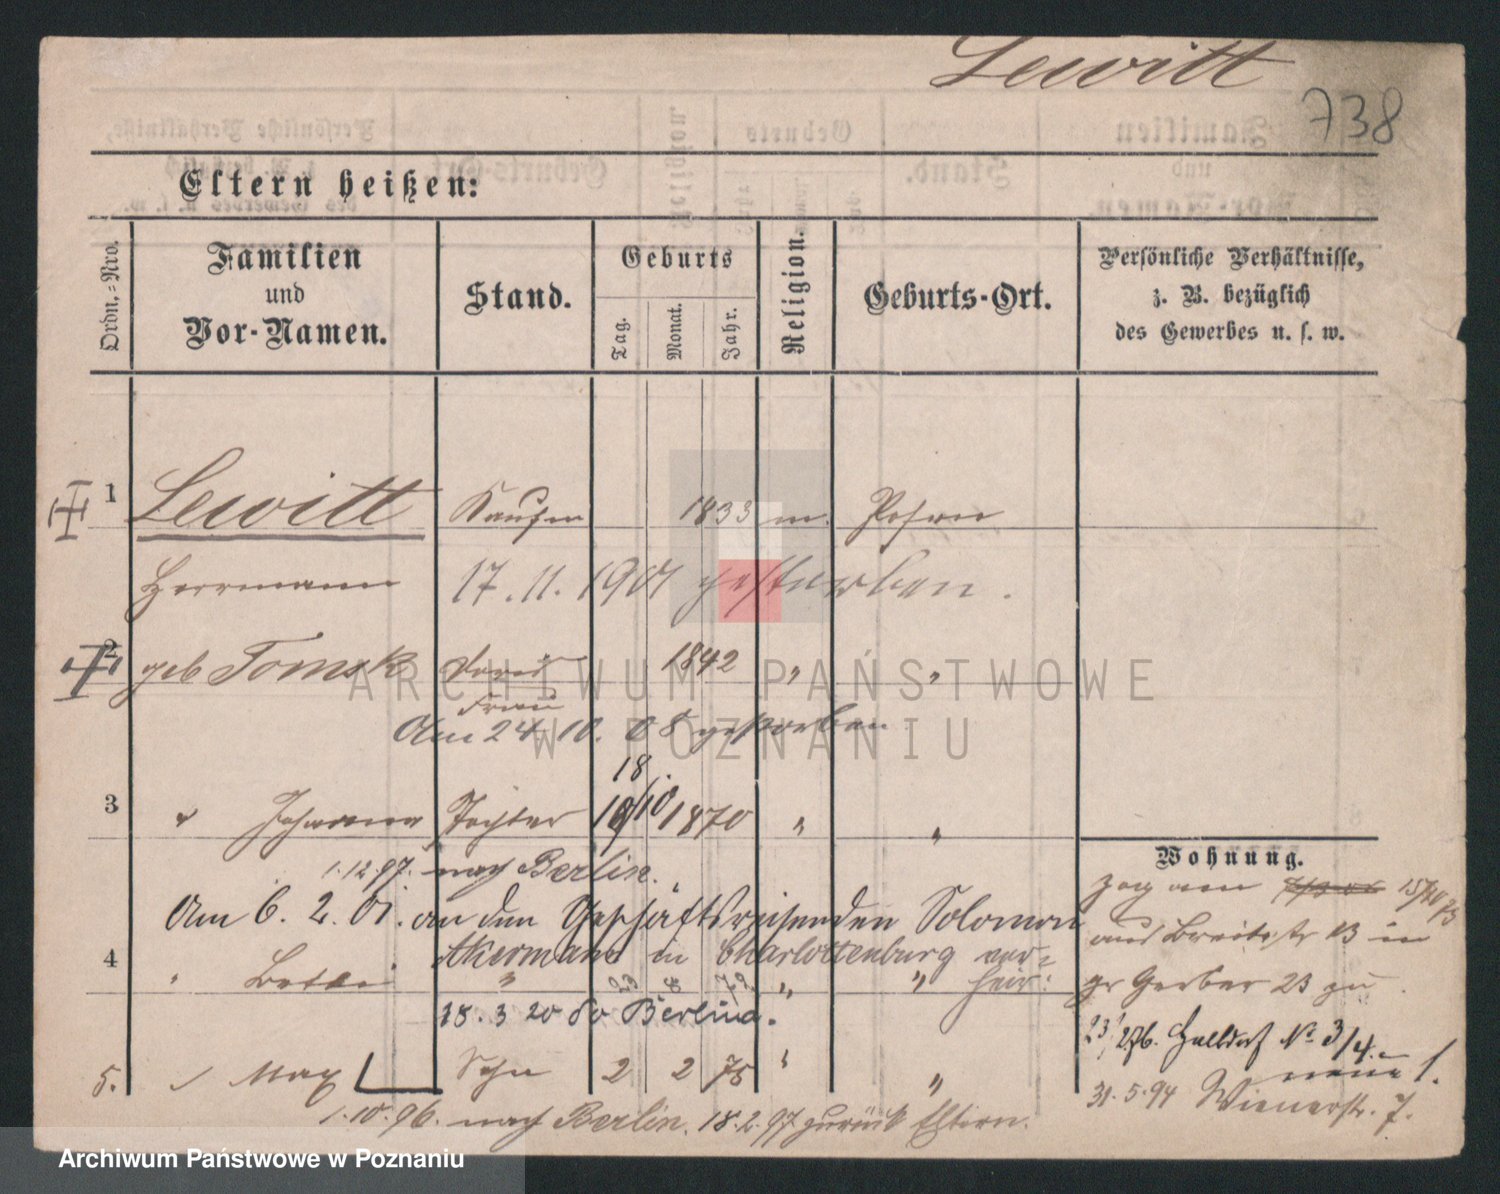 Lewitt
738
Eltern heißen:
Ordn.-Nro.
Familien
und
Vor-Namen.
Stand.
Geburts
Tag.
Monat.
Jahr.
Religion.
Geburts-Ort.
Persönliche Verhältnisse,
z. B. bezüglich
des Gewerbes u. s. w.
1 Lewitt Kaufm 1833 m. Posen
Herrmann 17.11.1901 gestorben.
2 geb Tomsk 1842 " "
Frau
Am 24.10.08 gestorben
18
3 " Johanna Tochter 10/10 1870 " "
1.12.97. nach Berlin.
Am 6.2.01. an den Geschäftsreisenden Solomon
Akermann in Charlottenburg ver=
heir:
4 " " 23 8 72 " "
18.3 20 do Berlina.
5. Max Sohn 2 2 75 " "
1.10.96. nach Berlin. 18.2.97 zurück Eltern.
Wohnung.
Zog am 15/10 73
aus Breitestr 13 in
gr Gerber 23 zu.
Halbdorf No 3/4.
neue 1.
31.5.94 Wienerstr. 7.
ARCHIWUM PAŃSTWOWE
W POZNANIU
Archiwum Państwowe w Poznaniu